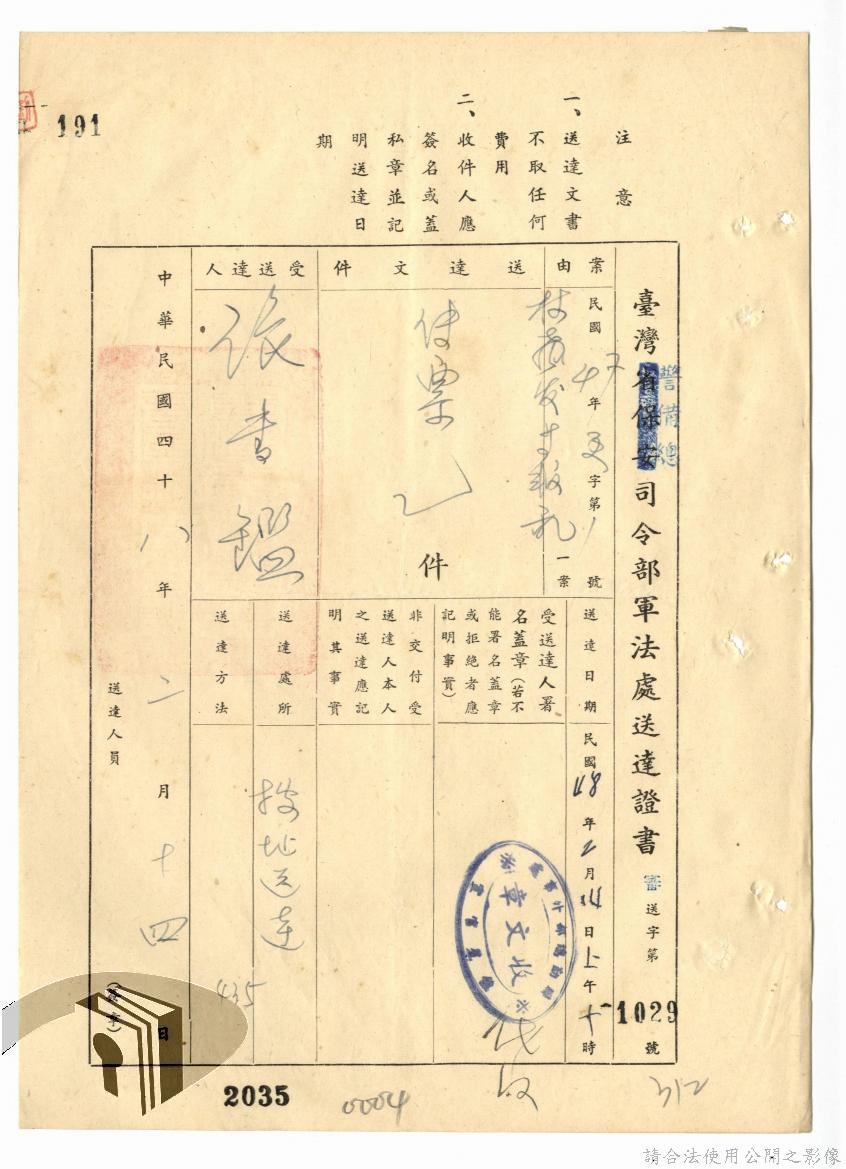 注意
一、送達文書
不取任何
費用
二、收件人應
簽名或蓋
私章並記
明送達日
期
191
臺灣省保安司令部軍法處送達證書
警備總
審送字第1029號
案由
民國47年字第1號
一案
送達文件
傳票乙件
受送達人
張書鑑
送達日期
民國48年2月14日上午十時
受送達人署
名蓋章(若不
能署名蓋章
或拒絕者應
記明事實)
收文章
代收
非交付受
送達人本人
之送達應記
明其事實
送達處所
按址送達
送達方法
435
中華民國四十八年二月十四日
送達人員
(簽章)
2035
0004
312
請合法使用公開之影像